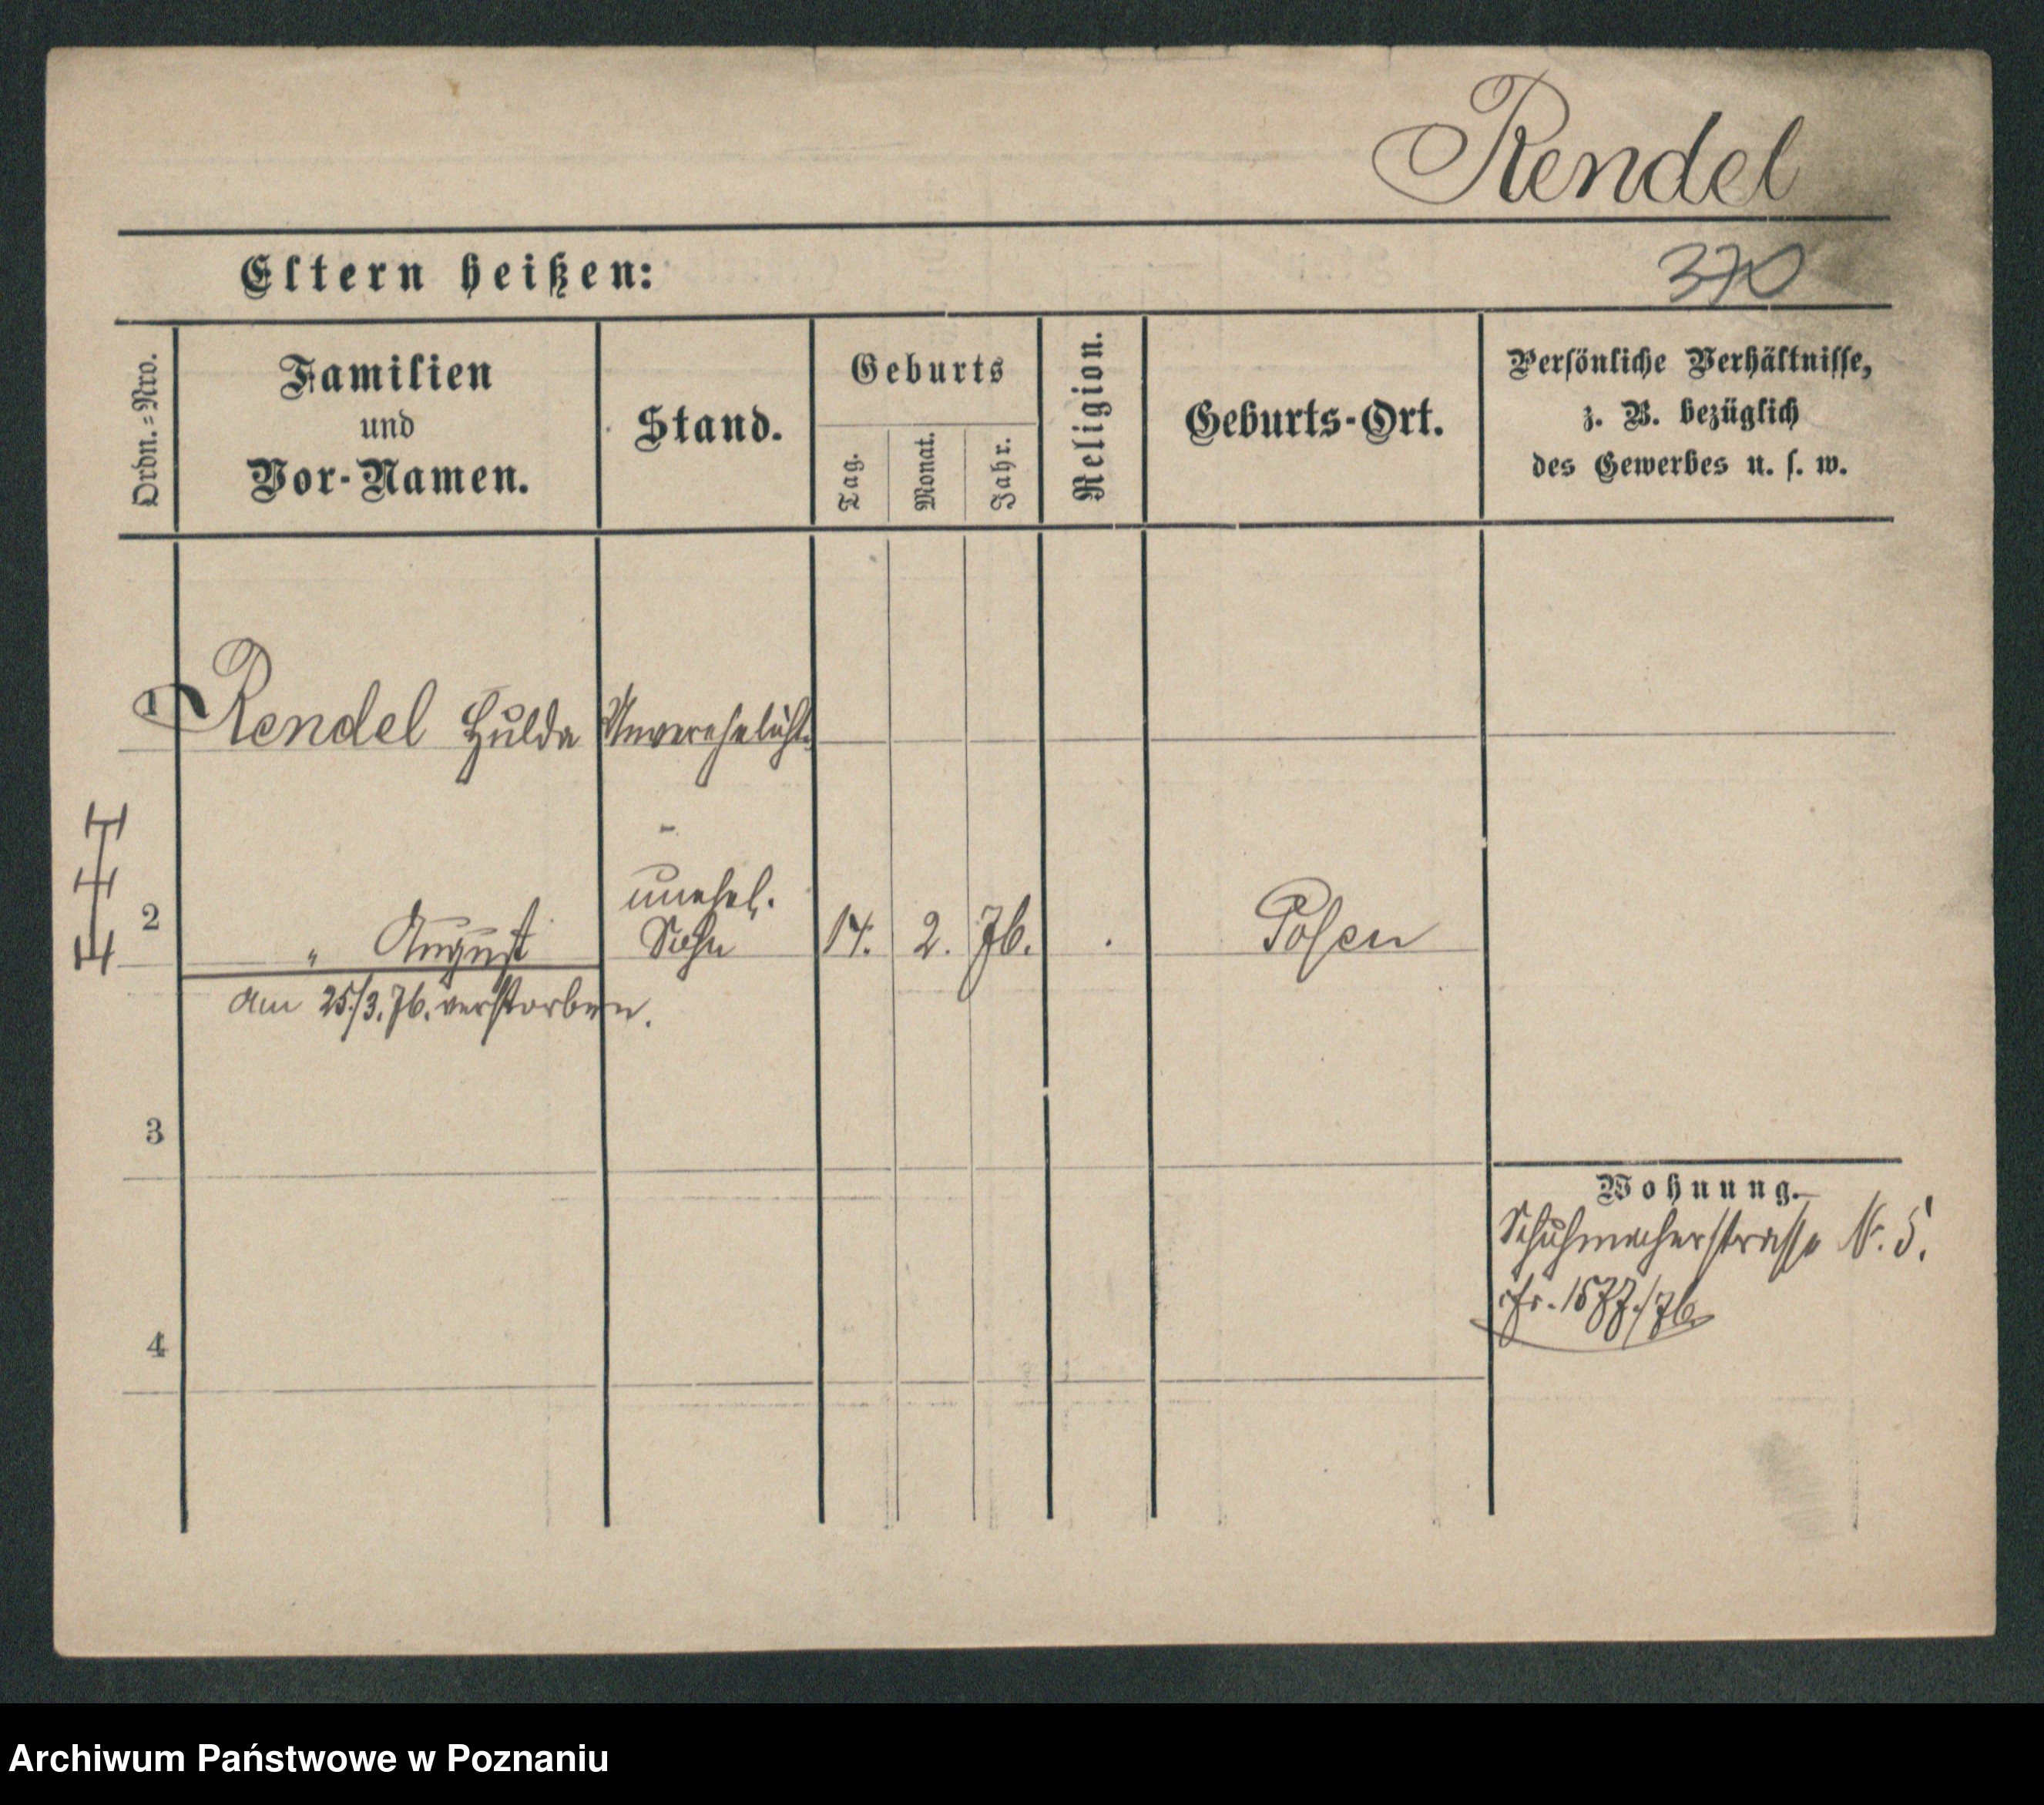 Rendel
Eltern heißen:
370
Ordn.=Nro.
Familien
und
Vor-Namen.
Stand.
Geburts
Tag.
Monat.
Jahr.
Religion.
Geburts-Ort.
Persönliche Verhältnisse,
z. B. bezüglich
des Gewerbes u. s. w.
1 Rendel Hulda Unverehelicht.
2 " August unehel. Sohn 14. 2. 76. Posen
am 25./3. 76. verstorben.
3
Wohnung.
Schuhmacherstrasse N. 5.
1577./76.
4
Archiwum Państwowe w Poznaniu